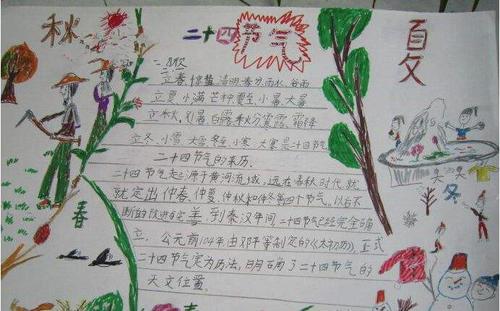 秋
二十四节气
夏
立春 惊蛰 清明 春分 雨水 谷雨
立夏 小满 芒种 夏至 小暑 大暑
立秋 处暑 白露 秋分 寒露 霜降
立冬 小雪 大雪 冬至 小寒 大寒是二十四节气
二十四节气的来历
二十四节气起源于黄河流域,远在春秋时代,就
就定出仲春、仲夏、仲秋和仲冬等四个节气。以后不
断的改进与完善,到秦汉年间二十四节气已经完全确
立。公元前104年由邓平等制定的《太初历》正式
二十四节气定为历法,明确了二十四节气的
天文位置。
春
冬
冬